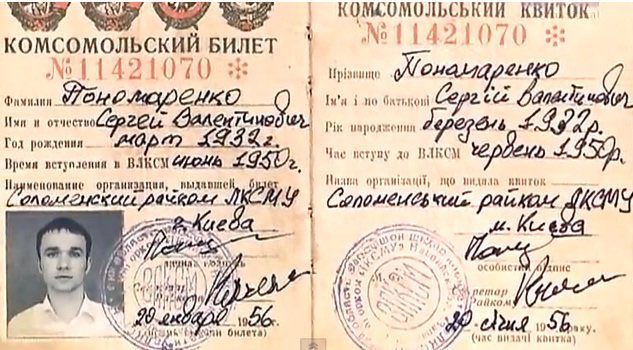 КОМСОМОЛЬСКИЙ БИЛЕТ
№11421070 *
Фамилия Пономаренко
Имя и отчество Сергей Валентинович
Год рождения март 1932г.
Время вступления в ВЛКСМ июнь 1950г.
Наименование организации, выдавшей билет
Соломенский райком ЛКСМУ
г. Киева
20 января 1956г.
КОМСОМОЛЬСЬКИЙ КВИТОК
№11421070 *
Прізвище Пономаренко
Ім'я і по батькові Сергій Валентинович
Рік народження березень 1932р.
Час вступу до ВЛКСМ червень 1950р.
Назва організації, що видала квиток
Соломенський райком ЛКСМУ
м. Києва
особистий підпис
20 січня 1956 року.
(час видачі квитка)